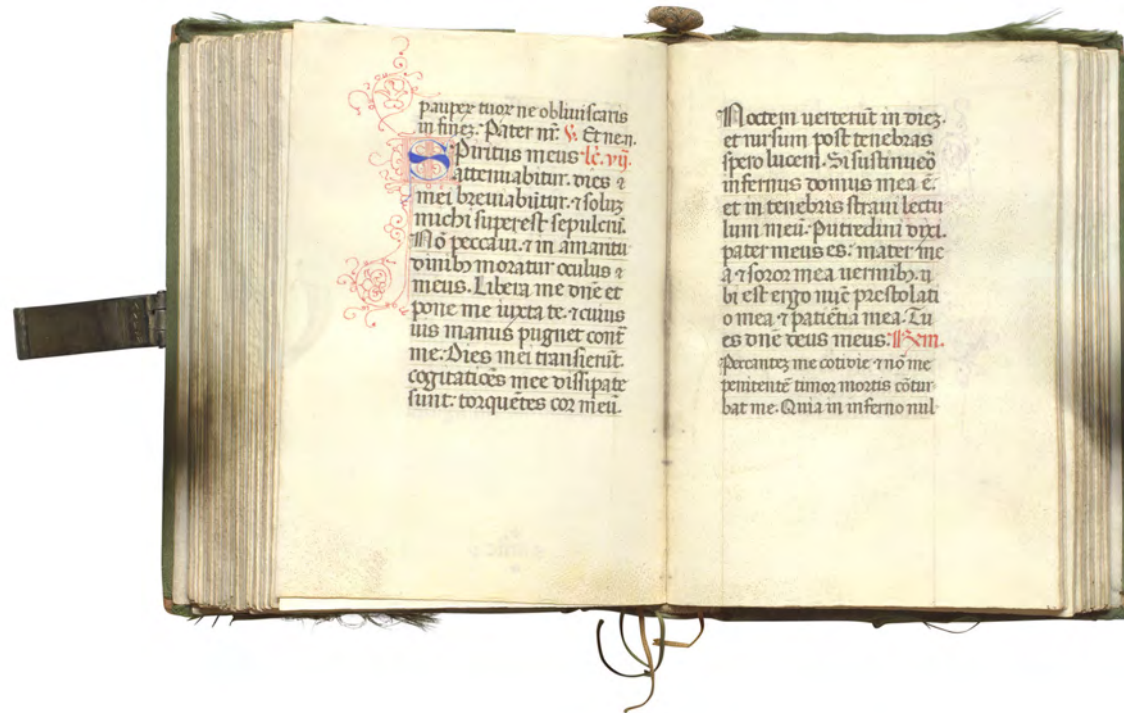 pauper tuor ne obliuiscaris
in finez. Pater nr̄. V. Et ne.n.
Spiritus meus lc̄. vij.
attenuabitur. dies ⁊
mei breuiabūtur. ⁊ soluz
michi superest sepulcrū.
Nō peccaui. ⁊ in amaritu
dinibꝫ moratur oculus ⁊
meus. Libera me dn̄e et
pone me iuxta te. ⁊ cuius
uis manus pugnet cont̄
me. Dies mei transierūt.
cogitatiōēs mee dissipate
sunt: torquētes cor meū.
Noctem uerterūt in diez.
et rursum post tenebras
spero lucem. Si sustinueō
infernus domus mea ē.
et in tenebris straui lectu
lum meū. Putredini dixi.
pater meus es: mater me
a ⁊ soror mea uermibꝫ. u
bi est ergo nūc prestolati
o mea ⁊ patiētia mea. Tu
es dn̄e deus meus. Rem.
Peccantez me cotidie ⁊ nō me
penitentē timor mortis cōtur
bat me. Quia in inferno nul